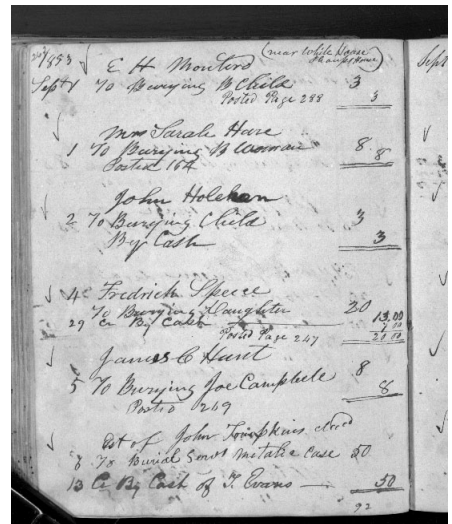 1853 E H Monteiro (near White House
Sept 1 To Burying B Child 3
Posted Page 288 3
Mrs Sarah Hare
1 To Burying B Woman 8
Posted 164 8
John Holehan
2 To Burying Child 3
By Cash 3
4 Fredrick Speece
To Burying Daughter 20 13.00
29 Cr By Cash 7.00
Posted Page 247 20.00
James C Hunt 8
5 To Burying Joe Campbele 8
Posted 249
Est of John Tompkins decd
8 To Burial Servt Metalic Case 50
13 Cr By Cash of T. Evans — 50
92
Sept